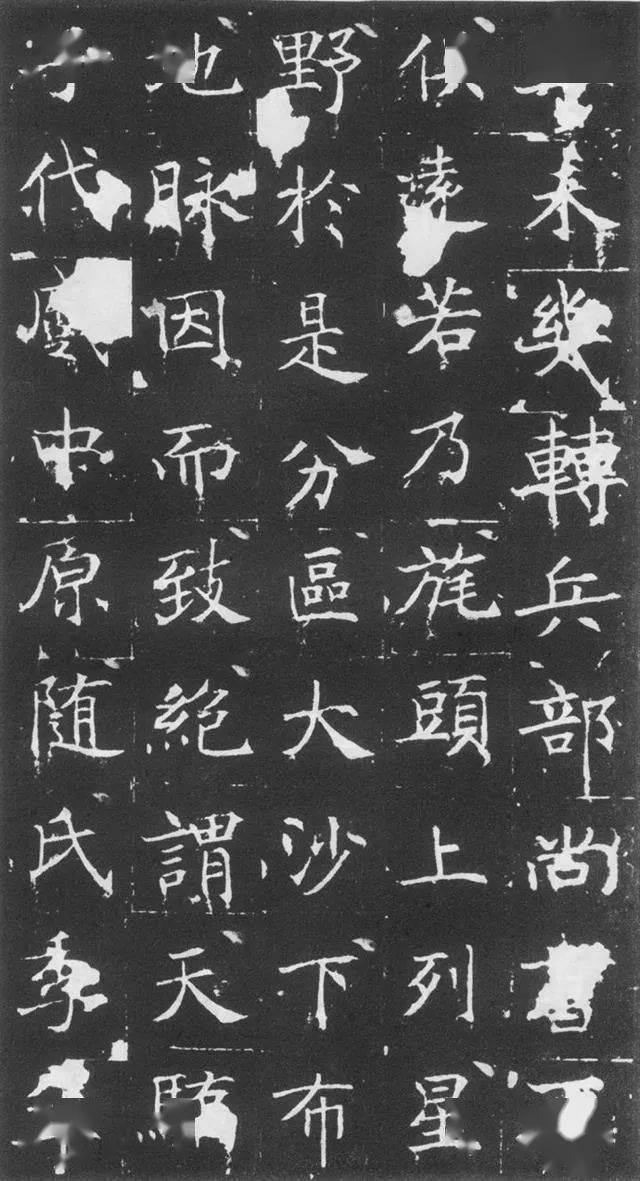 来幾轉兵部尚書
逺若乃旄頭上列星
野於是分區大沙下布
地脉因而致絶謂天驕
子代處中原随氏季